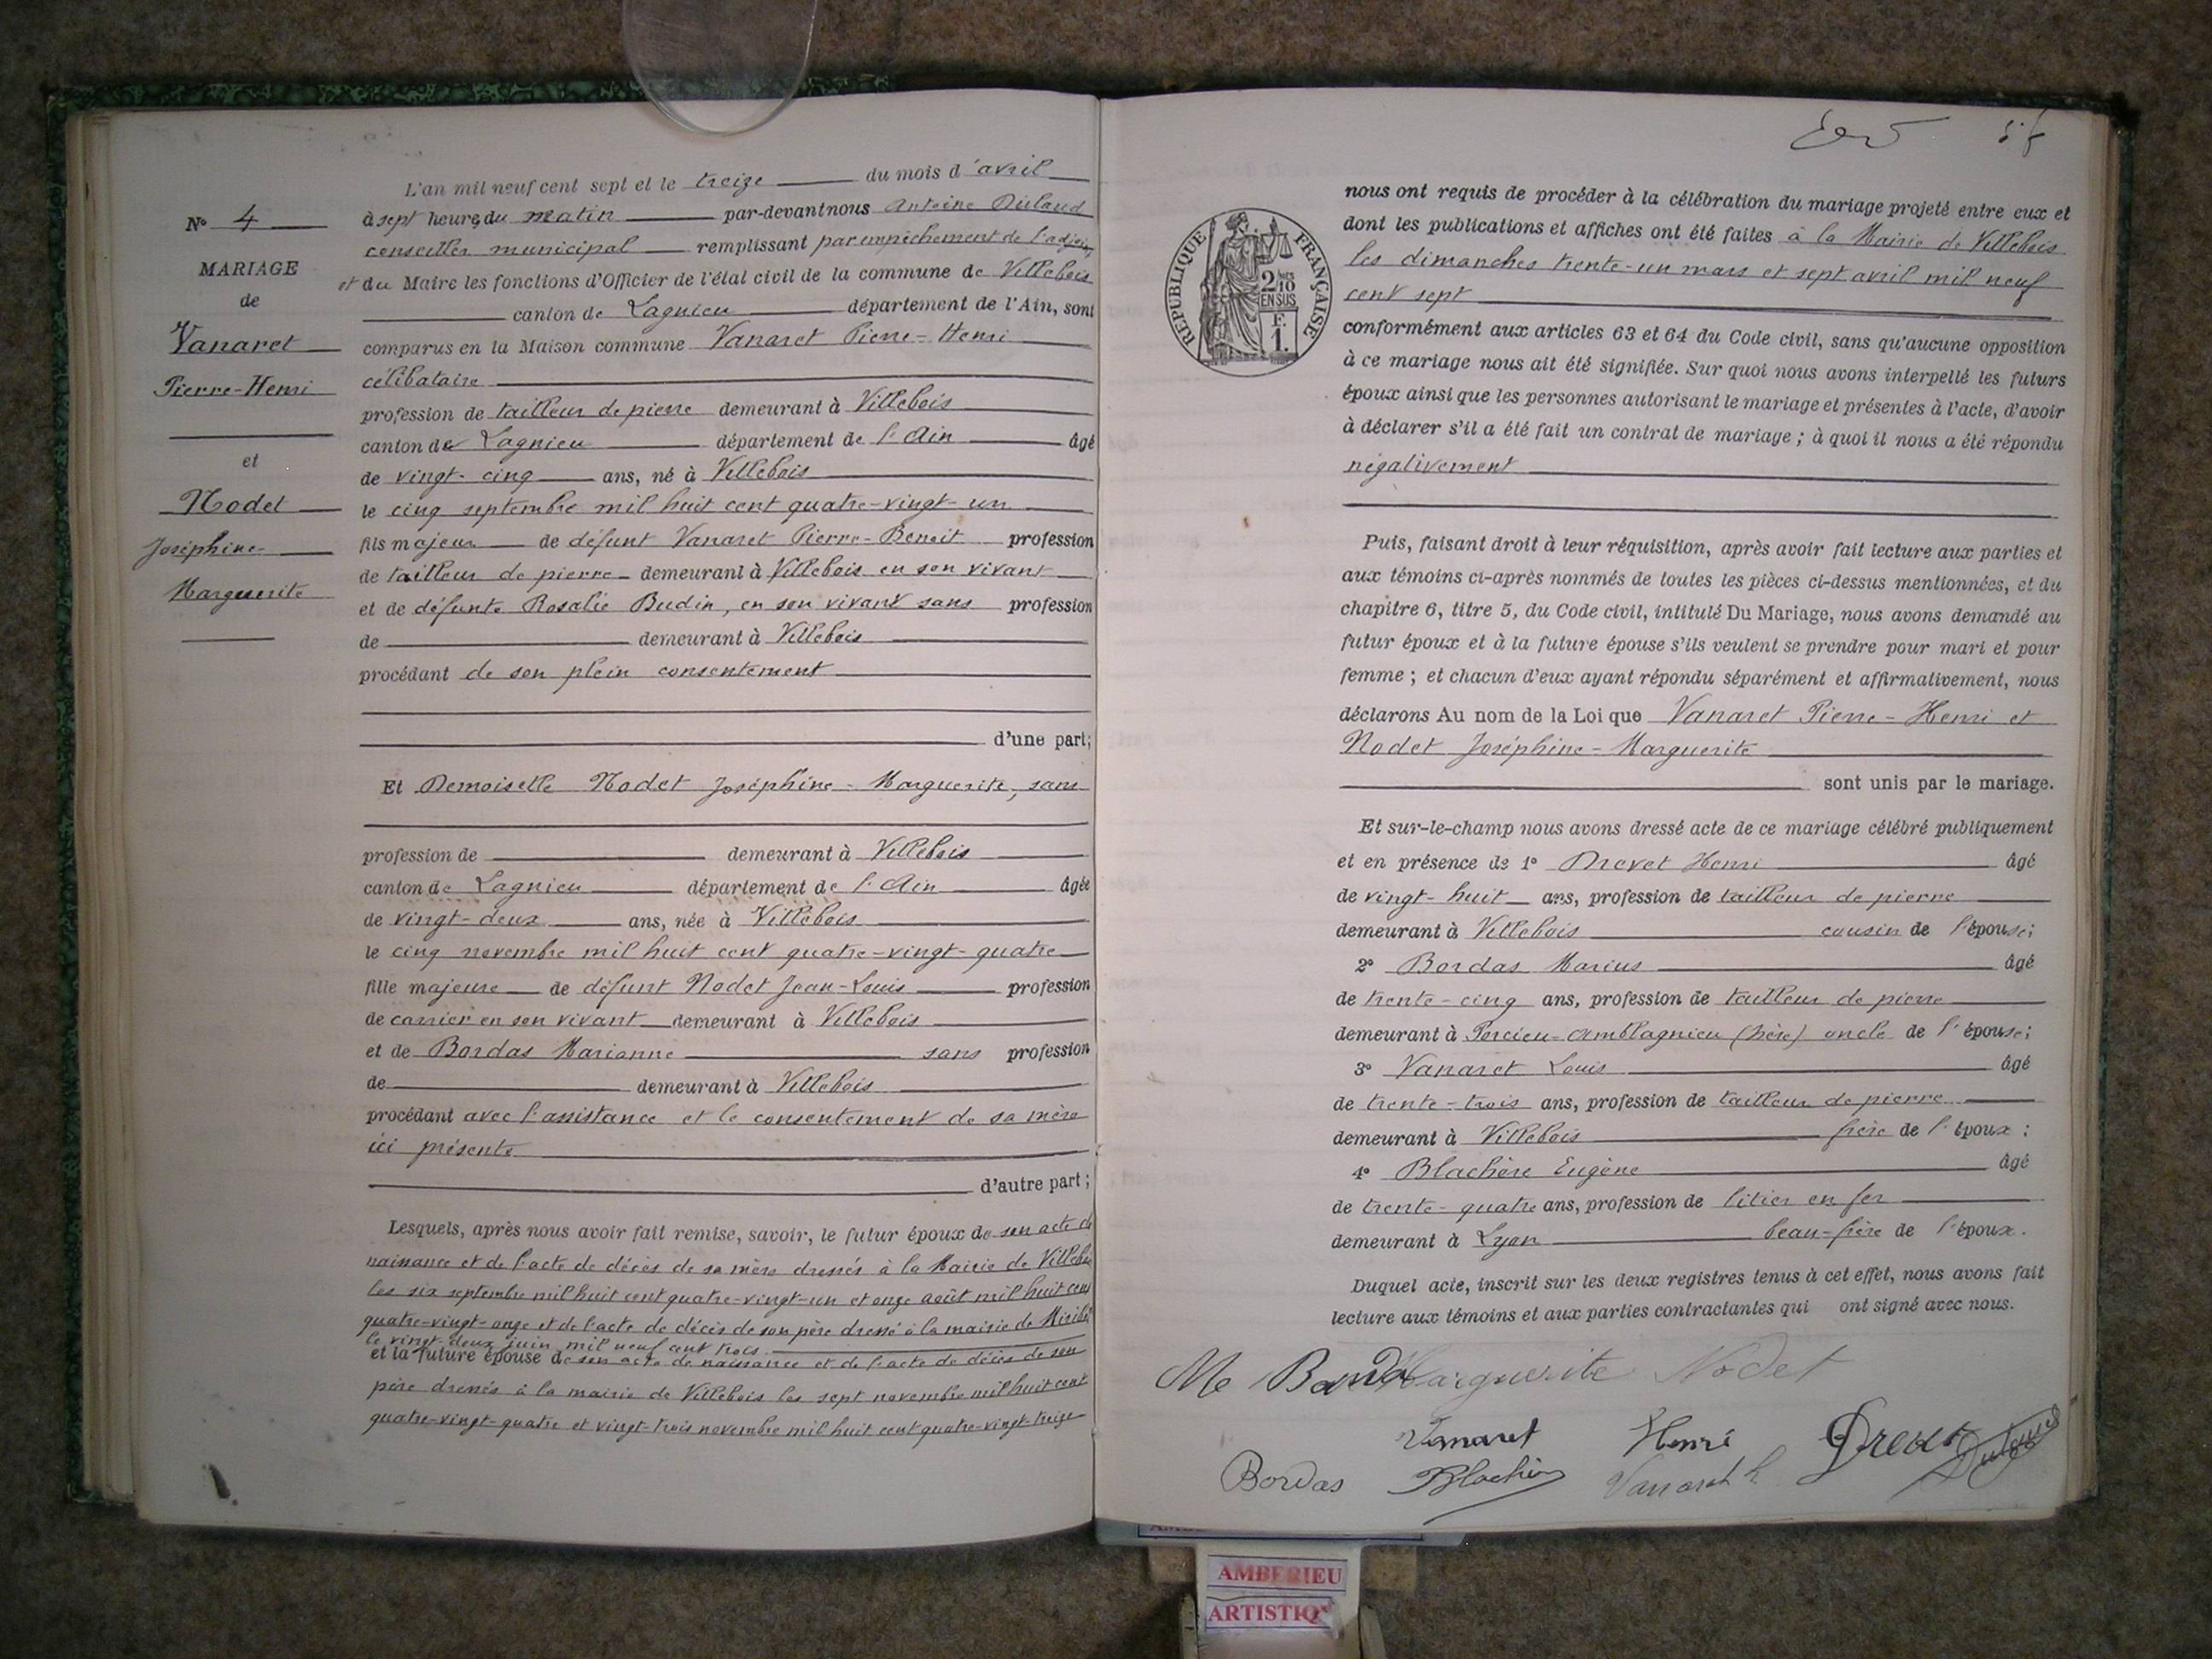 L'an mil neuf cent sept et le treize du mois d'avril
à sept heures du matin par-devant nous Antoine
conseiller municipal remplissant par empêchement de l'adjoint
et du Maire les fonctions d'Officier de l'état civil de la commune de Villebois
canton de Lagnieu département de l'Ain, sont
comparus en la Maison commune Vanaret Pierre-Henri
célibataire
profession de tailleur de pierre demeurant à Villebois
canton de Lagnieu département de l'Ain âgé
de vingt-cinq ans, né à Villebois
le cinq septembre mil huit cent quatre-vingt-un
fils majeur de défunt Vanaret Pierre-Benoit profession
de tailleur de pierre demeurant à Villebois en son vivant
et de défunte Rosalie Budin, en son vivant sans profession
de demeurant à Villebois
procédant de son plein consentement
d'une part;
Et Demoiselle Nodet Joséphine-Marguerite, sans
profession de demeurant à Villebois
canton de Lagnieu département de l'Ain âgée
de vingt-deux ans, née à Villebois
le cinq novembre mil huit cent quatre-vingt-quatre
fille majeure de défunt Nodet Jean-Louis profession
de carrier en son vivant demeurant à Villebois
et de Bordas Marianne sans profession
de demeurant à Villebois
procédant avec l'assistance et le consentement de sa mère
ici présente
d'autre part;
Lesquels, après nous avoir fait remise, savoir, le futur époux de son acte de
naissance et de l'acte de décès de sa mère dressés à la Mairie de Villebois
les six septembre mil huit cent quatre-vingt-un et onze août mil huit cent
quatre-vingt-onze et de l'acte de décès de son père dressé à la mairie de Miribel
le vingt-deux juin mil neuf cent trois
et la future épouse de son acte de naissance et de l'acte de décès de son
père dressés à la mairie de Villebois les sept novembre mil huit cent
quatre-vingt-quatre et vingt-trois novembre mil huit cent quatre-vingt-treize
N° 4
MARIAGE
de
Vanaret
Pierre-Henri
et
Nodet
Joséphine
Marguerite
RÉPUBLIQUE FRANÇAISE
2/10
EN SUS
F.
1.
nous ont requis de procéder à la célébration du mariage projeté entre eux et
dont les publications et affiches ont été faites à la Mairie de Villebois
les dimanches trente-un mars et sept avril mil neuf
cent sept
conformément aux articles 63 et 64 du Code civil, sans qu'aucune opposition
à ce mariage nous ait été signifiée. Sur quoi nous avons interpellé les futurs
époux ainsi que les personnes autorisant le mariage et présentes à l'acte, d'avoir
à déclarer s'il a été fait un contrat de mariage; à quoi il nous a été répondu
négativement
Puis, faisant droit à leur réquisition, après avoir fait lecture aux parties et
aux témoins ci-après nommés de toutes les pièces ci-dessus mentionnées, et du
chapitre 6, titre 5, du Code civil, intitulé Du Mariage, nous avons demandé au
futur époux et à la future épouse s'ils veulent se prendre pour mari et pour
femme; et chacun d'eux ayant répondu séparément et affirmativement, nous
déclarons Au nom de la Loi que Vanaret Pierre-Henri et
Nodet Joséphine-Marguerite
sont unis par le mariage.
Et sur-le-champ nous avons dressé acte de ce mariage célébré publiquement
et en présence de 1° Drevet Henri âgé
de vingt-huit ans, profession de tailleur de pierre
demeurant à Villebois cousin de l'épouse;
2° Bordas Marius âgé
de trente-cinq ans, profession de tailleur de pierre
demeurant à Porcieu-Amblagnieu (Isère) oncle de l'épouse;
3° Vanaret Louis âgé
de trente-trois ans, profession de tailleur de pierre
demeurant à Villebois frère de l'époux;
4° Blachère Eugène âgé
de trente-quatre ans, profession de litier en fer
demeurant à Lyon beau-frère de l'époux.
Duquel acte, inscrit sur les deux registres tenus à cet effet, nous avons fait
lecture aux témoins et aux parties contractantes qui ont signé avec nous.
Me Bordas Marguerite Nodet
Vanaret Henri Drevet
Bordas Blachère Vanaret L
AMBERIEU
ARTISTIQ